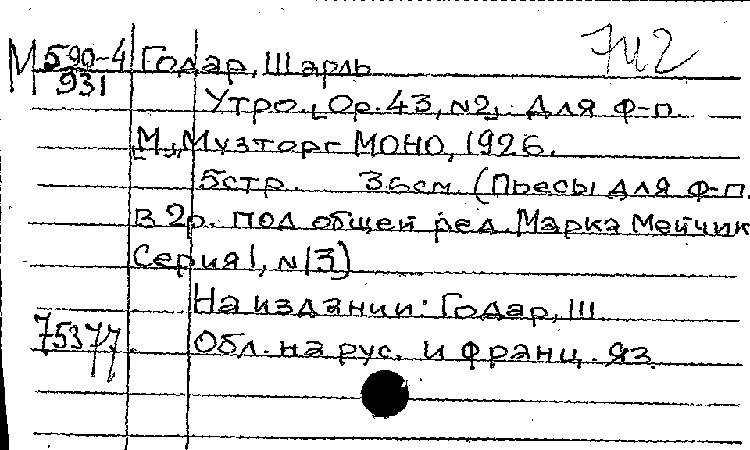 742
М 590-4 Годар, Шарль
931
Утро. [Op. 43, №2]. Для ф-п.
[М.], Музторг МОНО, 1926.
5стр. 36см. (Пьесы для ф-п.
в 2р. под общей ред. Марка Мейчик
Серия 1, №13)
На издании: Годар, Ш.
75377 Обл. на рус. и франц. яз.